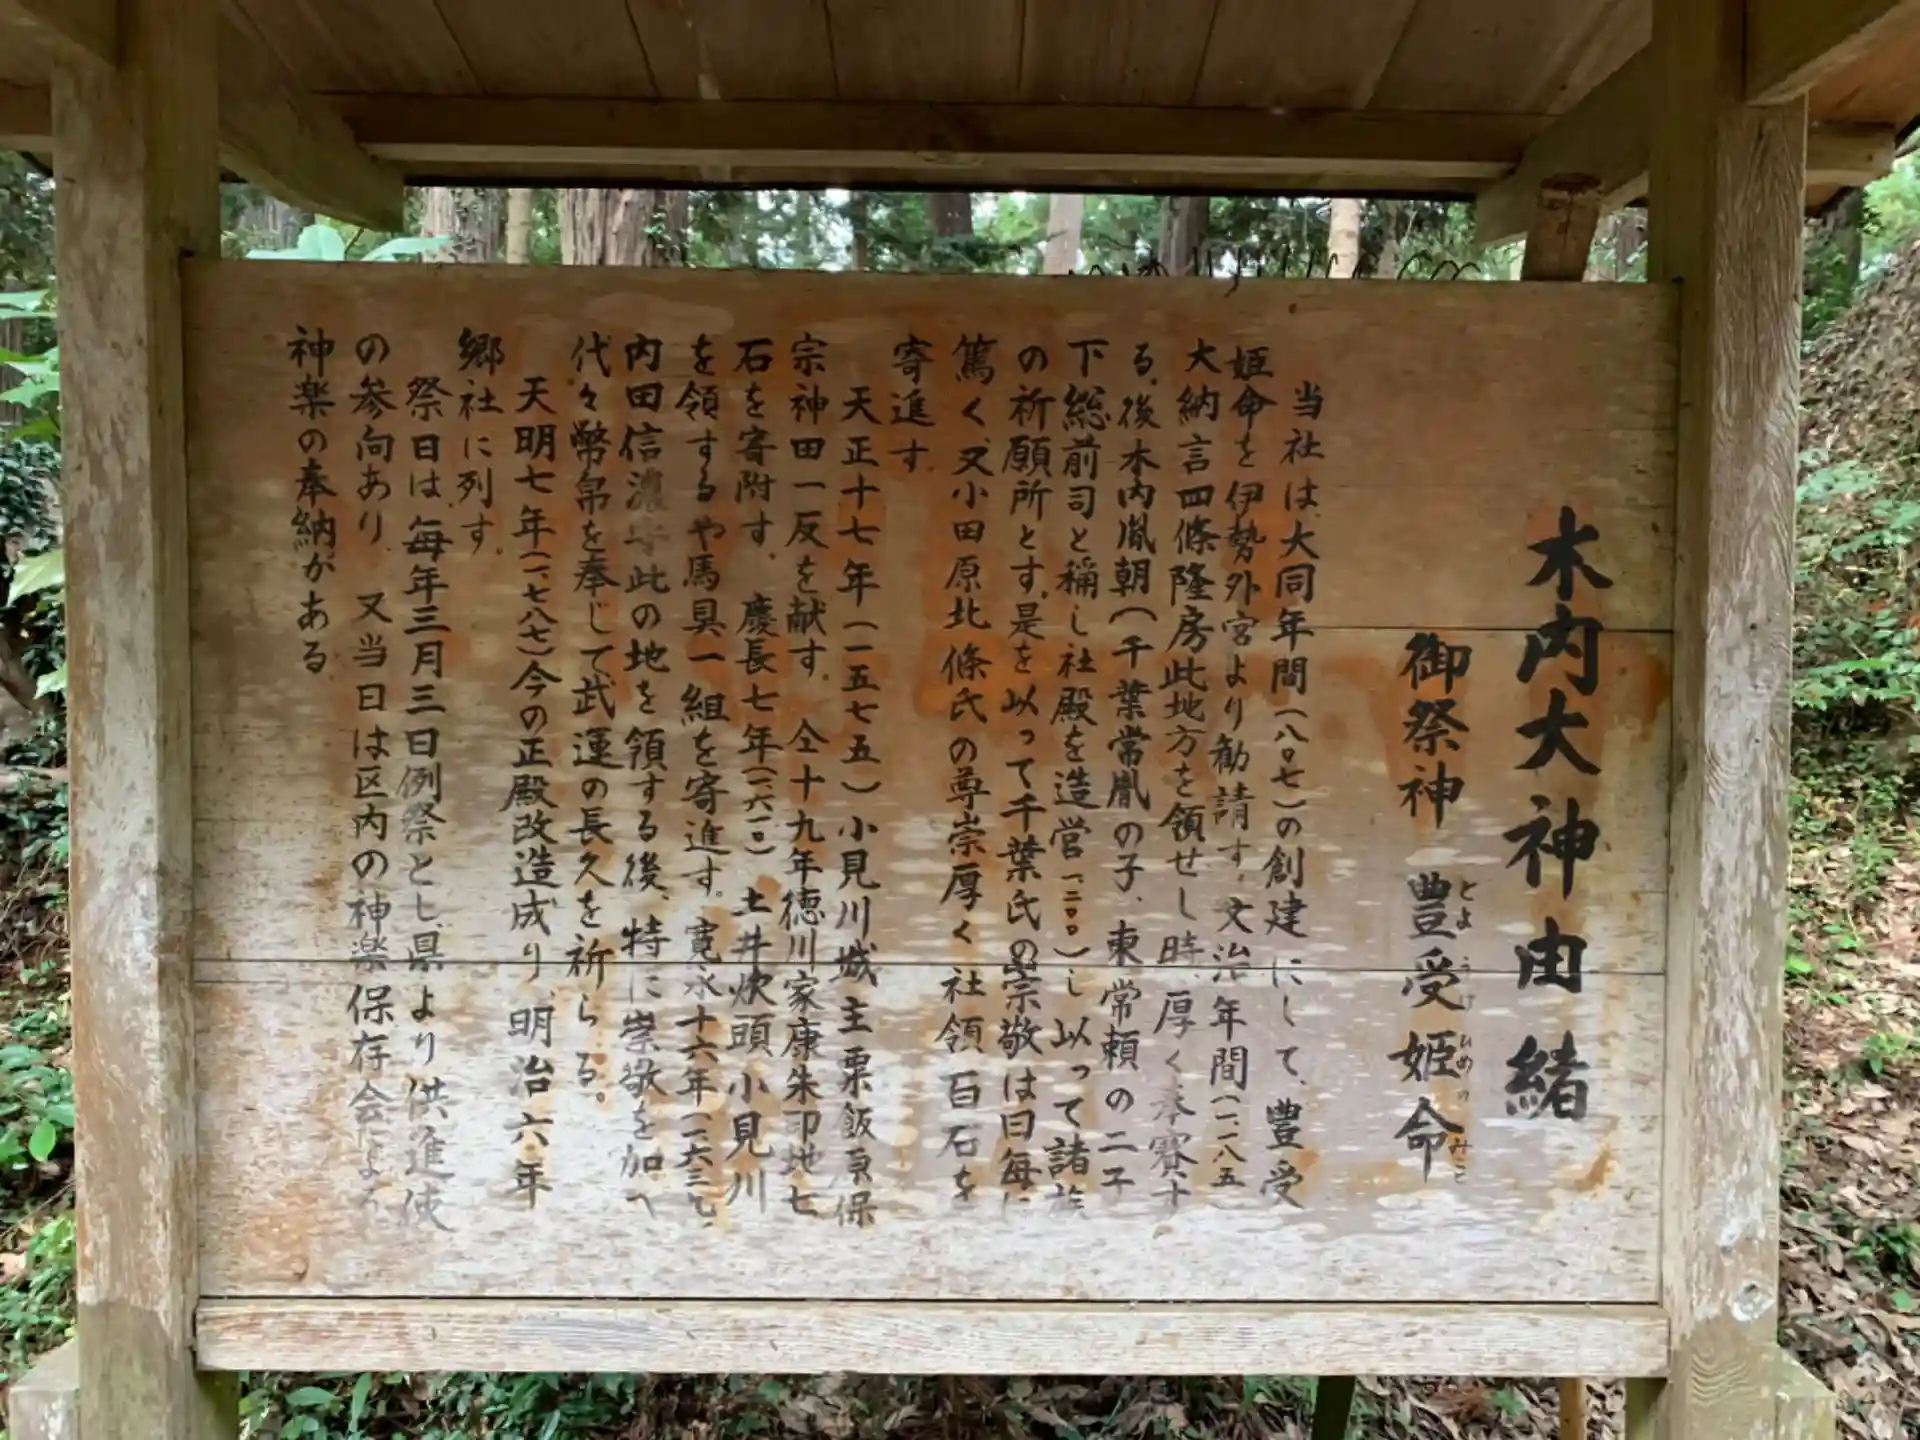 木内大神由緒
御祭神 豊受姫命
とようけひめのみこと
当社は、大同年間(八〇七)の創建にして、豊受
姫命を伊勢外宮より勧請す。文治年間(一一八五)
大納言四條隆房此地方を領せし時、厚く奉賽す
る。後木内胤朝(千葉常胤の子、東常頼の二子
下総前司と稱し社殿を造営(一二〇〇)し以って諸族
の祈願所とす。是を以って千葉氏の崇敬は日毎に
篤く又小田原北條氏の尊崇厚く社領百石を
寄進す。
天正十七年(一五七五)小見川城主粟飯原保
宗神田一反を献す。仝十九年徳川家康朱印地七
石を寄附す。慶長七年(一六一〇)土井炊頭小見川
を領するや馬具一組を寄進す。寛永十六年(一六三九)
内田信濃守此の地を領する後、特に崇敬を加へ
代々幣帛を奉じて武運の長久を祈らる。
天明七年(一七八七)今の正殿改造成り、明治六年
郷社に列す。
祭日は、毎年三月三日例祭とし、県より供進使
の参向あり、又当日は区内の神楽保存会による
神楽の奉納がある。